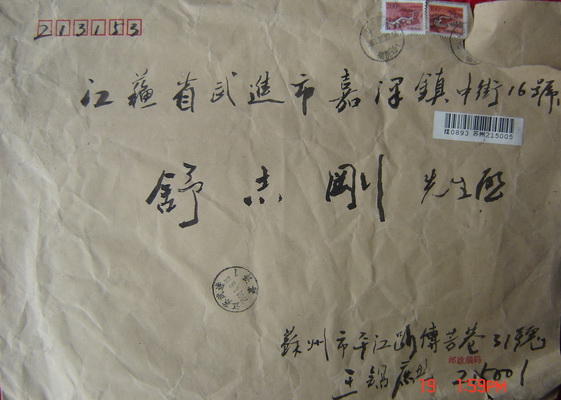 213153
江蘇省武進市嘉泽鎮中街16號
挂0893 苏州215005
舒志剛 先生啟
蘇州市平江路 巷31號
邮政编码
王錫 215001
19 1:39PM